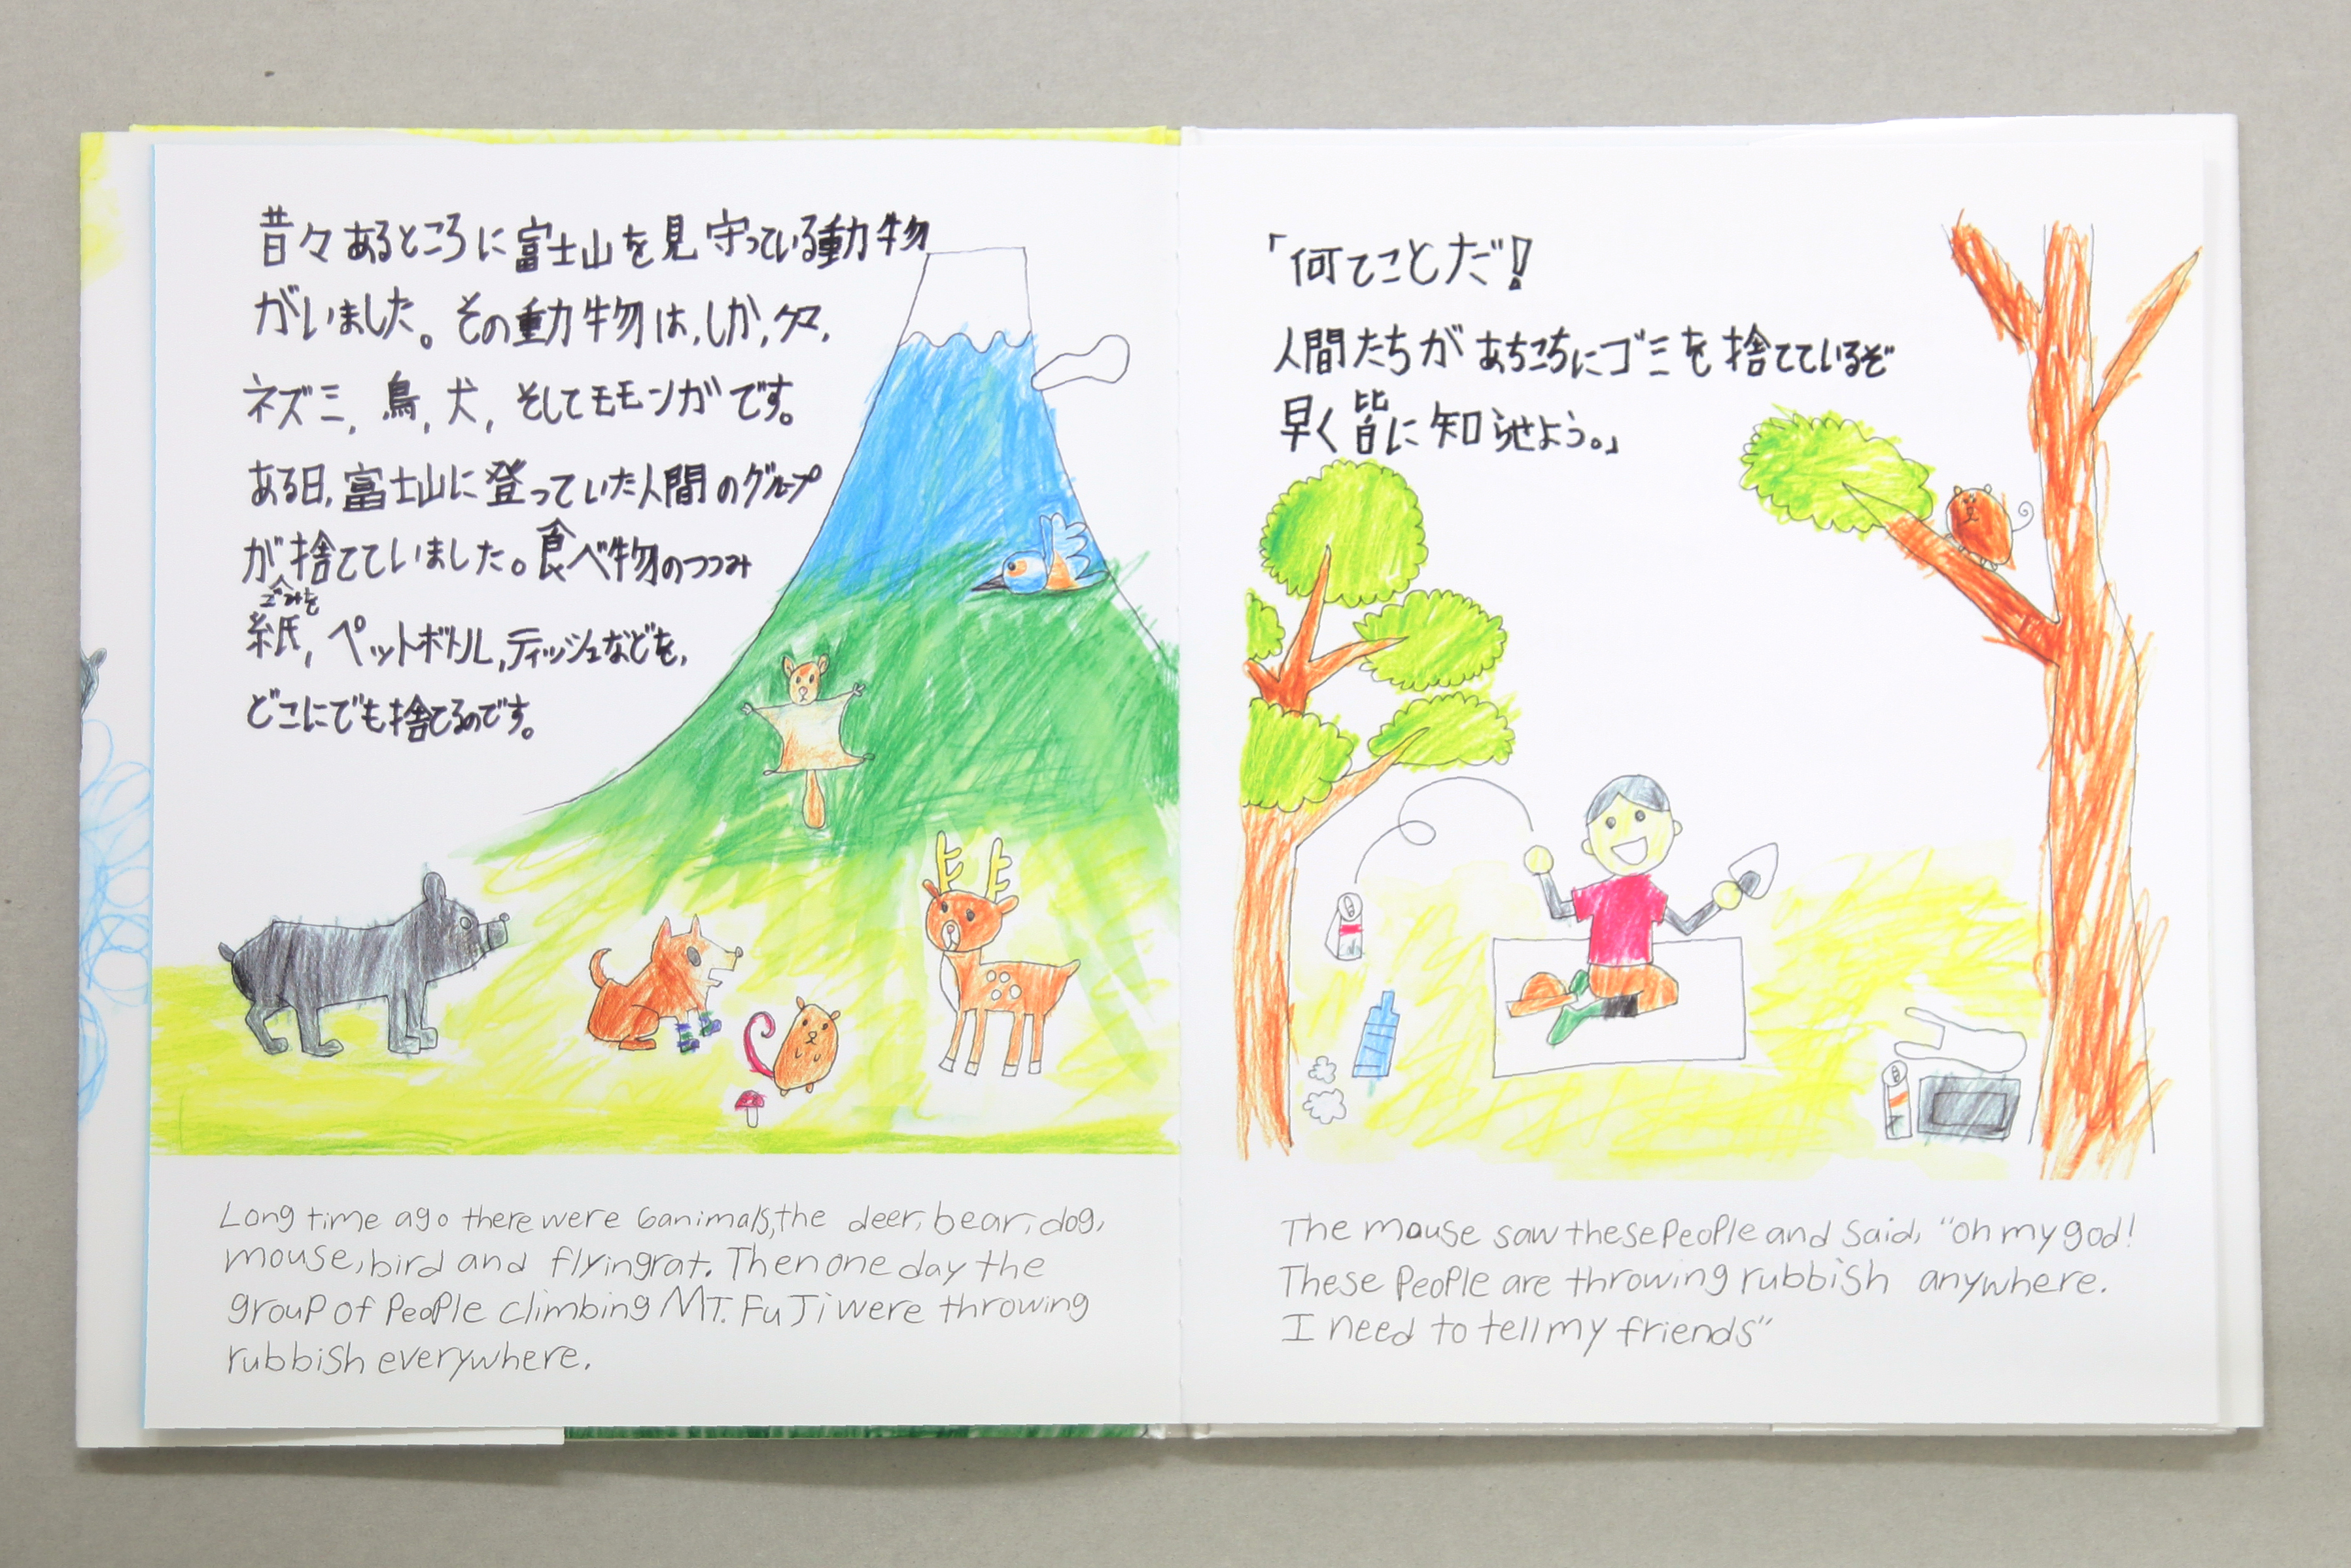 昔々あるところに富士山を見守っている動物
がいました。その動物は,しか,クマ,
ネズミ,鳥,犬,そしてモモンガです。
ある日,富士山に登っていた人間のグループ
が捨てていました。食べ物のつつみ
ごみを
紙,ペットボトル,ティッシュなどを,
どこにでも捨てるのです。
Long time ago there were 6animals,the deer, bear, dog,
mouse, bird and flyingrat. Then one day the
group of people climbing MT. FuJi were throwing
rubbish everywhere.
「何てことだ!
人間たちがあちこちにゴミを捨てているぞ
早く皆に知らせよう。」
The mouse saw these people and said, "oh my god!
These people are throwing rubbish anywhere.
I need to tell my friends"